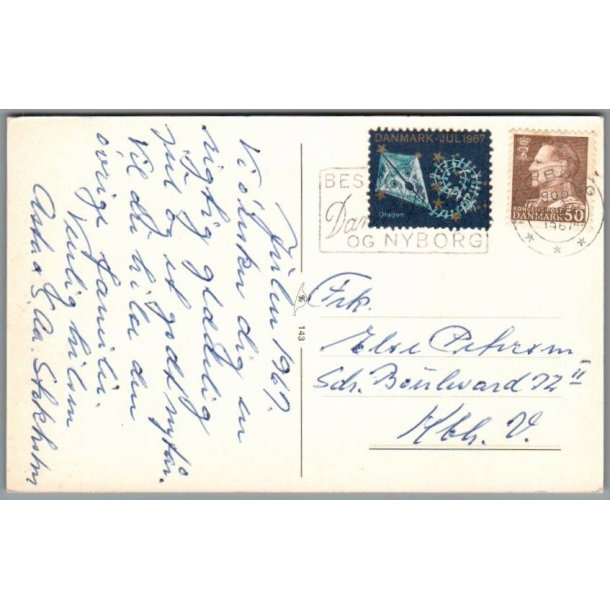 Julen 1967.
Vi ønsker dig en
rigtig glædelig
jul og et godt nytår.
Vil du hilse den
øvrige familie.
Kærlig hilsen
Asta & Aa. Stokholm
143
DANMARK · JUL 1967
Dragen
BES
Dan
OG NYBORG
1967
DANMARK 50
Frk.
Else Petersen
Sdr. Boulevard 72 II
Kbh. V.